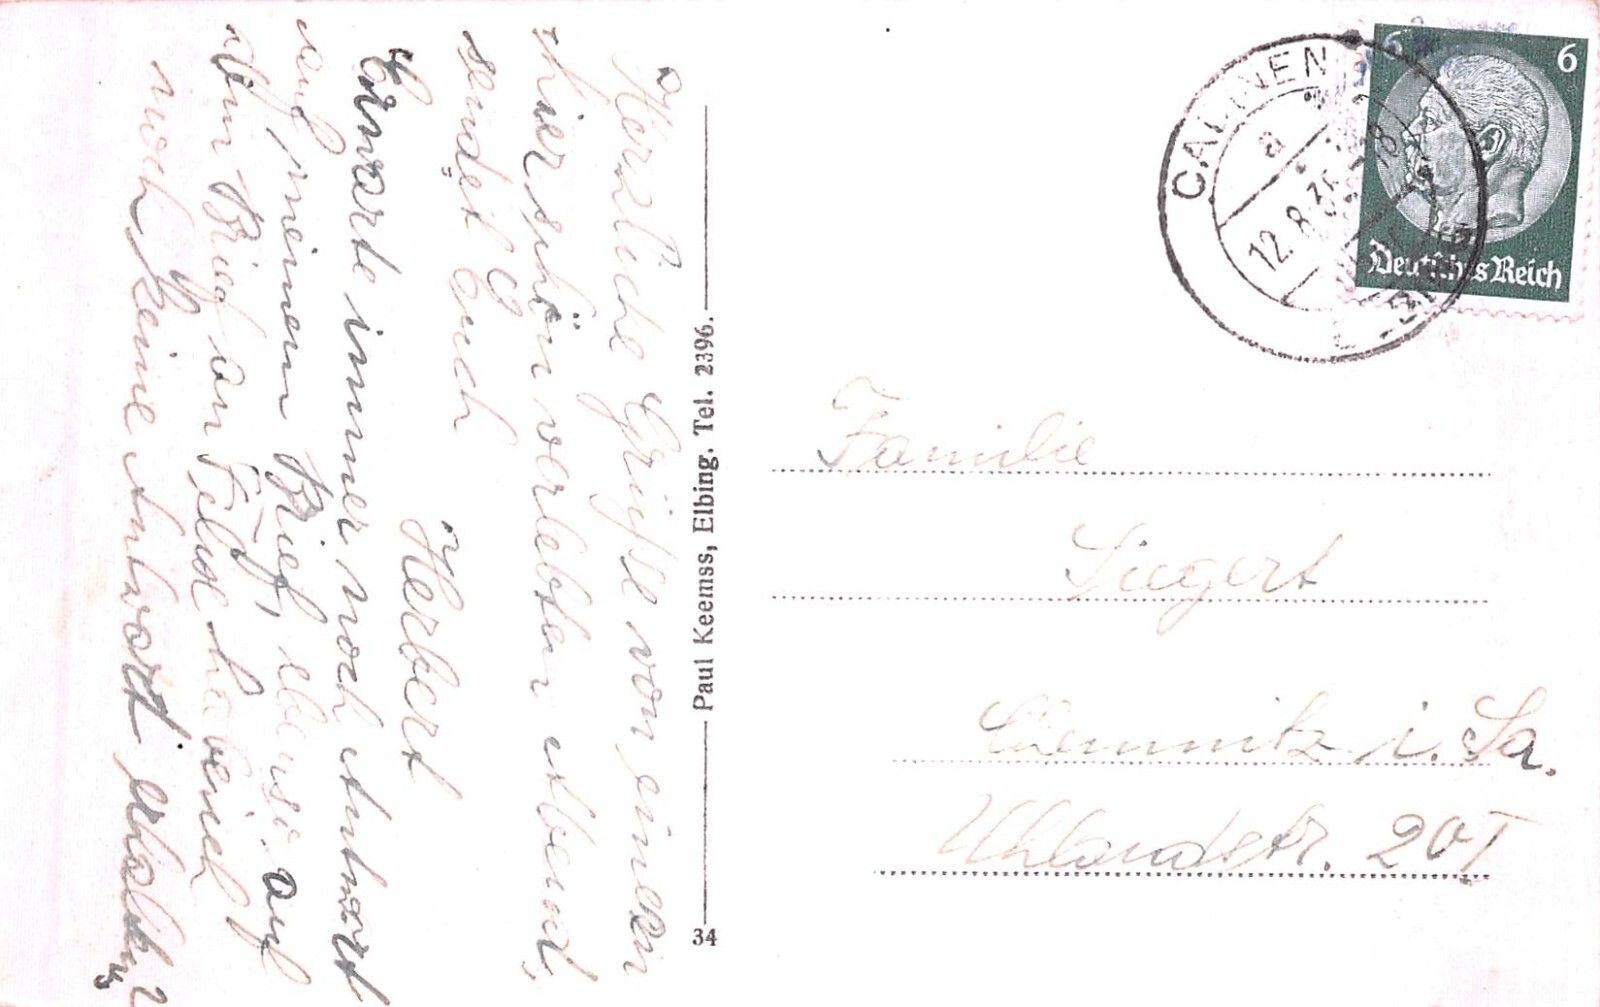 Herzliche Grüsse von einem
hier schön verlebten Abend,
sendet Euch
Herbert
Erwarte immer noch Antwort
auf meinen Brief, ebenso auf
den Brief an
noch keine Antwort erhalten
Paul Keemss, Elbing. Tel. 2396.
34
CADINEN
a
12.8.3
18
6
6
Deutsches Reich
Familie
Siegert
Chemnitz i. Sa.
Uhlandstr. 20 I